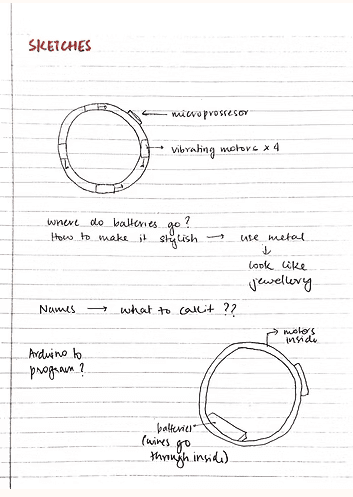 SKETCHES
microprossesor
vibrating motors x 4
Where do batteries go?
How to make it stylish → use metal
↓
look like
jewellery
Names → what to call it ??
motors
inside
Arduino to
program?
batteries
(wires go
through inside)